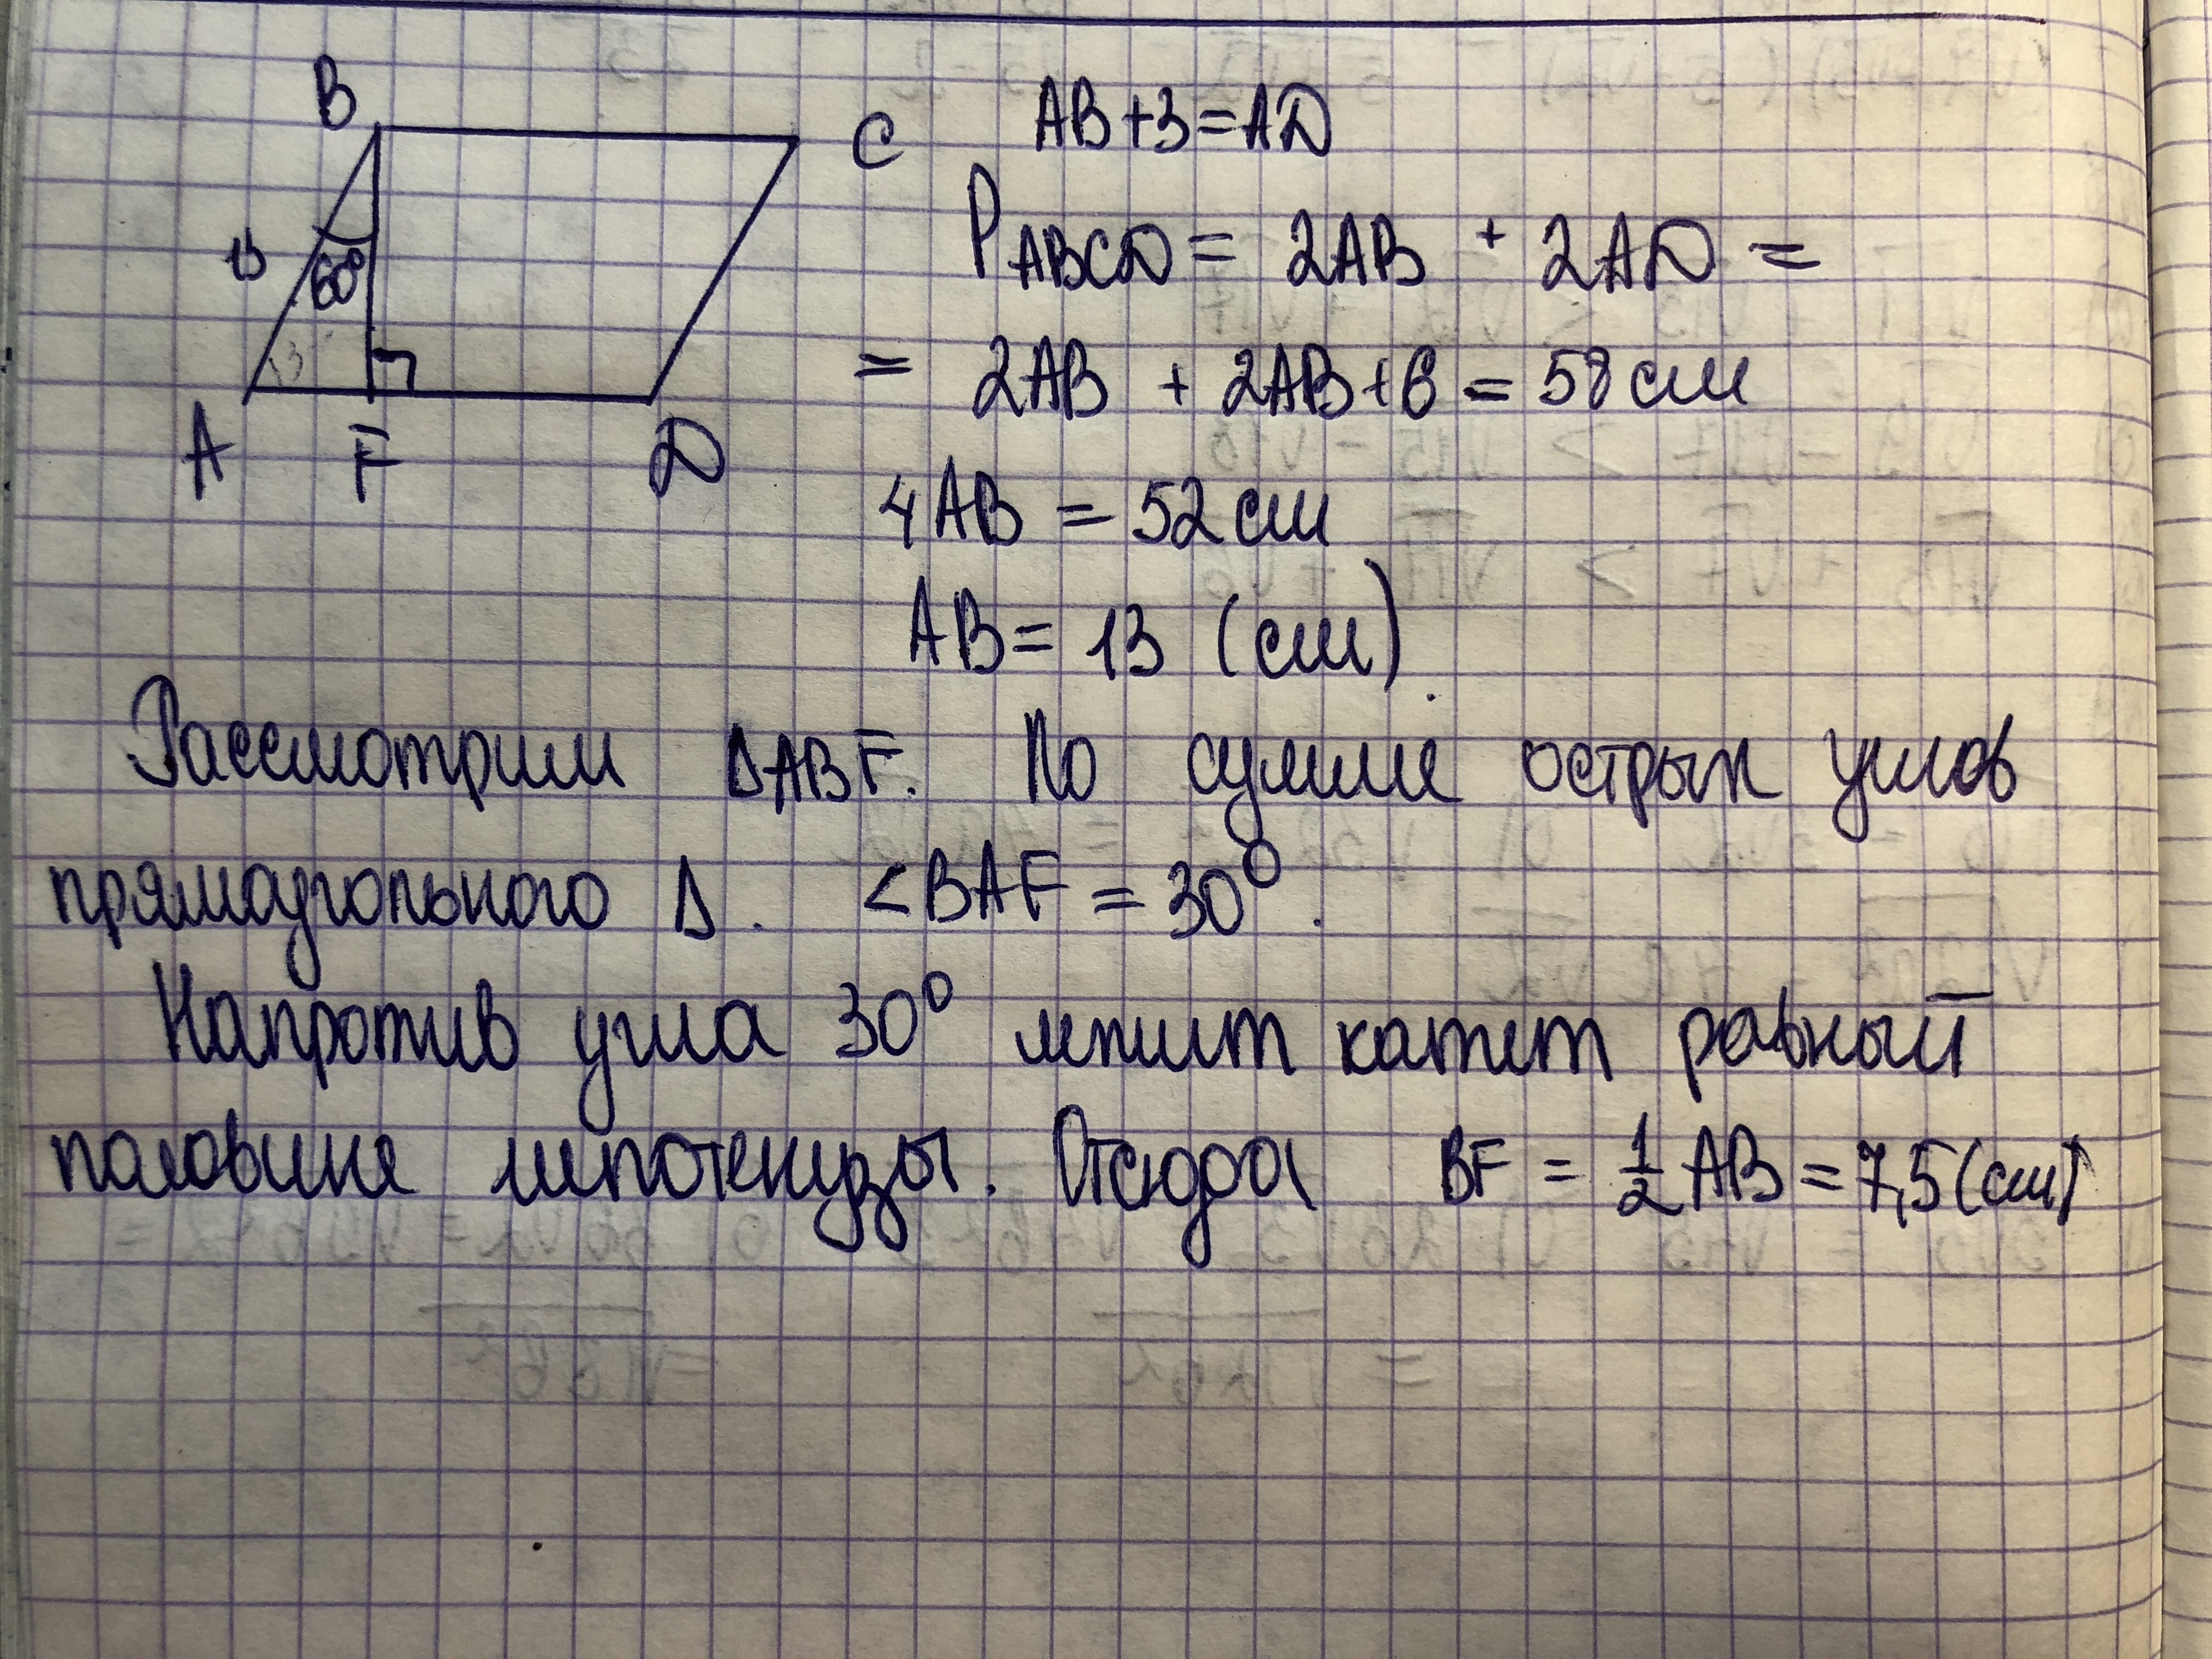 B
C
AB+3=AD
13
60°
P ABCD = 2AB + 2AD =
3
= 2AB + 2AB+6 = 58 см
A
F
D
4AB = 52 см
AB = 13 (см).
Рассмотрим ΔABF. По сумме острых углов
прямоугольного Δ. <BAF = 30°.
Напротив угла 30° лежит катет равный
половине гипотенузы. Отсюда BF = 1/2 AB = 7,5 (см)